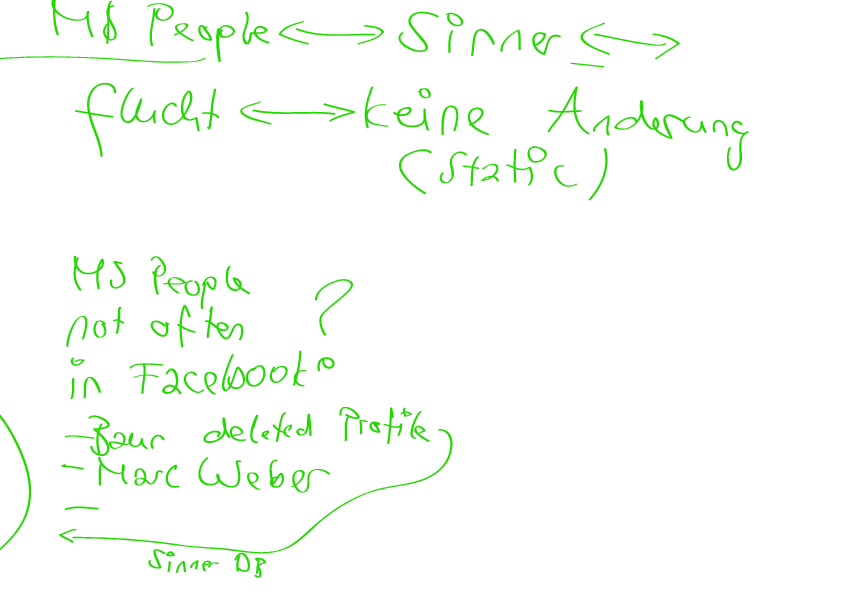 MS People <-> Sinner <->
flucht <-> keine Änderung
(Static)
MS People
not often ?
in Facebook
- Baur deleted Profile
- Marc Weber
-
Sinner DB